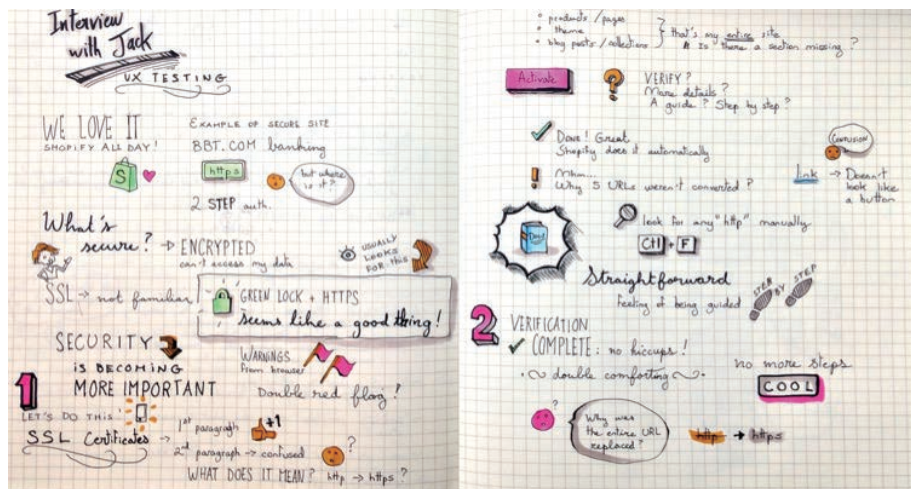 Interview
with Jack
UX TESTING
WE LOVE IT
SHOPIFY ALL DAY!
S
EXAMPLE OF SECURE SITE
BBT.COM banking
https
but where
is it?
2 STEP auth.
What's
secure? → ENCRYPTED
can't access my data
USUALLY
LOOKS
FOR THIS
SSL → not familiar
GREEN LOCK + HTTPS
seems like a good thing!
SECURITY
IS BECOMING
MORE IMPORTANT
WARNINGS
from browser
Double red flag?
1
LET'S DO THIS!
SSL Certificates →
1st paragraph +1
2nd paragraph → confused ?
WHAT DOES IT MEAN? http → https?
• products / pages
• theme
• blog posts / collections
that's my entire site
Is there a section missing?
Activate
?
VERIFY?
More details?
A guide? Step by step?
Done! Great
Shopify does it automatically
!
Mhm...
Why 5 URLs weren't converted?
CONFUSION
link → Doesn't
look like
a button
look for any "http" manually
Ctl + F
Straightforward
Feeling of being guided
STEP
BY
STEP
2
VERIFICATION
COMPLETE: no hiccups!
double comforting
no more steps
COOL
?
Why was
the entire URL
replaced?
http → https